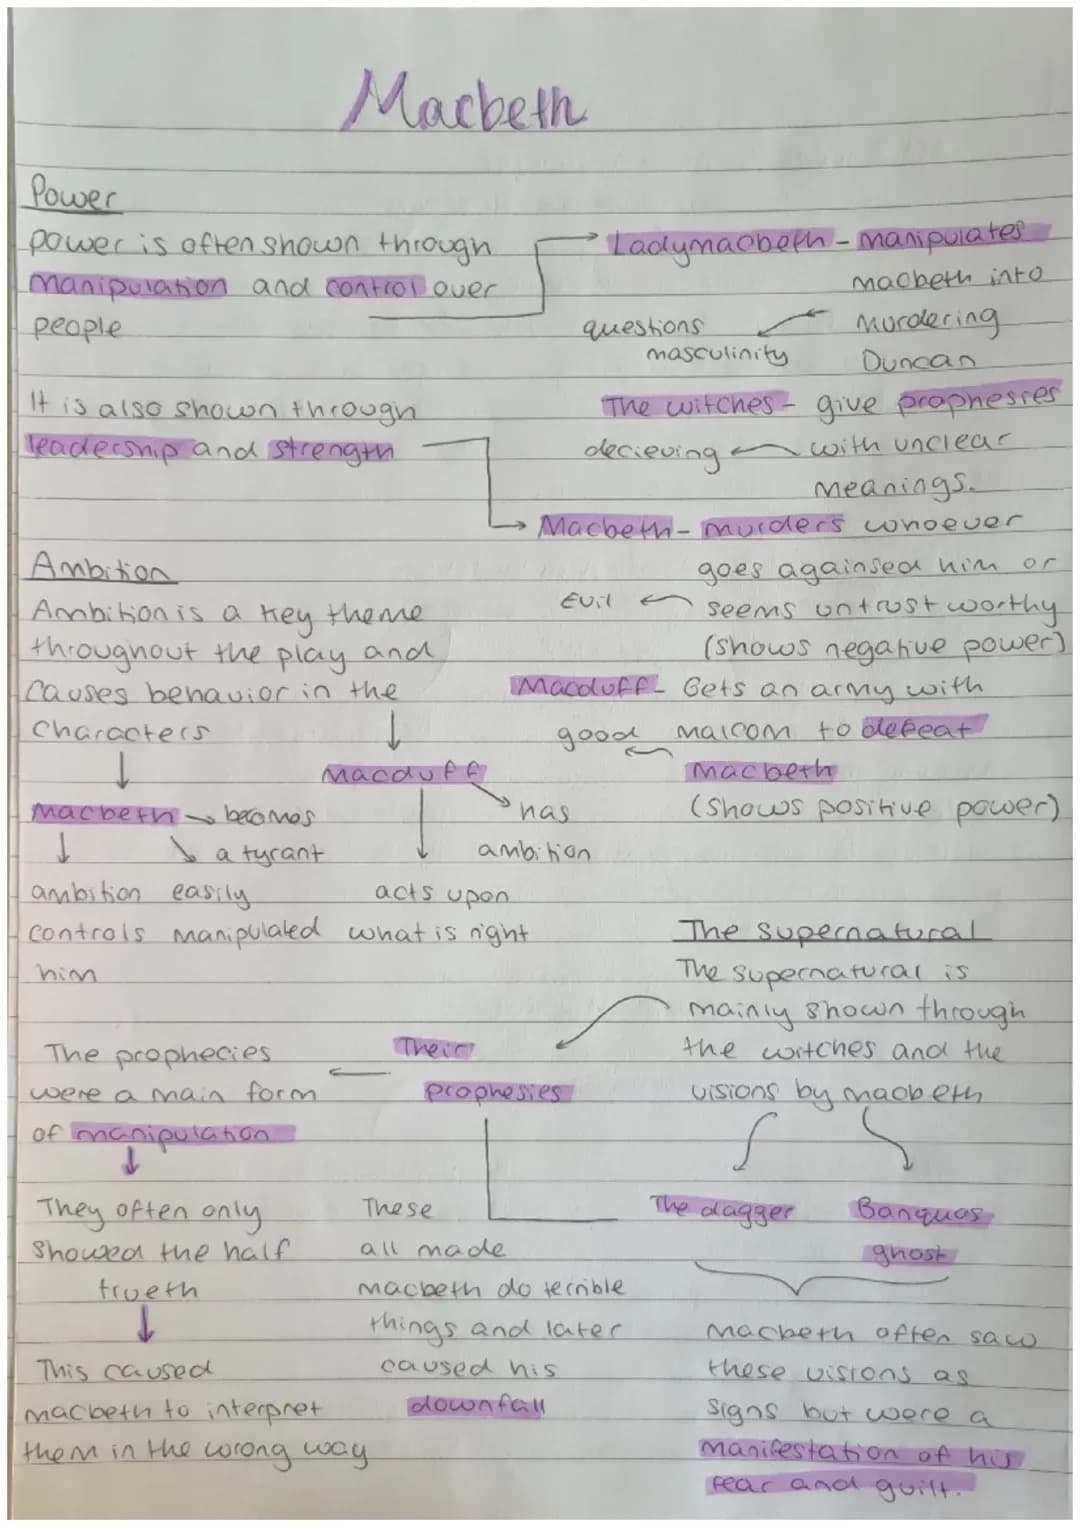 Macbeth
Power
power is often shown through
manipulation and control over
people
Ladymacbeth - manipulates
macbeth into
murdering
Duncan
questions
masculinity
It is also shown through
leadership and strength
The witches - give prophesies
with unclear
meanings.
decieving
Macbeth - murders whoever
goes againsed him or
seems untrustworthy
(shows negative power)
Evil
Macduff - Gets an army with
malcom to defeat
macbeth
(shows positive power)
good
Ambition
Ambition is a key theme
throughout the play and
causes behavior in the
characters
Macbeth → becomes
a tyrant
ambition
controls
him
easily
manipulated
Macduff
has
ambition
acts upon
what is right
The supernatural
The supernatural is
mainly shown through
the witches and the
visions by macbeth
Their
prophesies
The prophecies
were a main form
of manipulation
They often only
showed the half
trueth
This caused
macbeth to interpret
them in the wrong way
These
all made
macbeth do terrible
things and later
caused his
downfall
The dagger
Banquos
ghost
Macbeth often saw
these visions as
signs but were a
manifestation of his
fear and guilt.